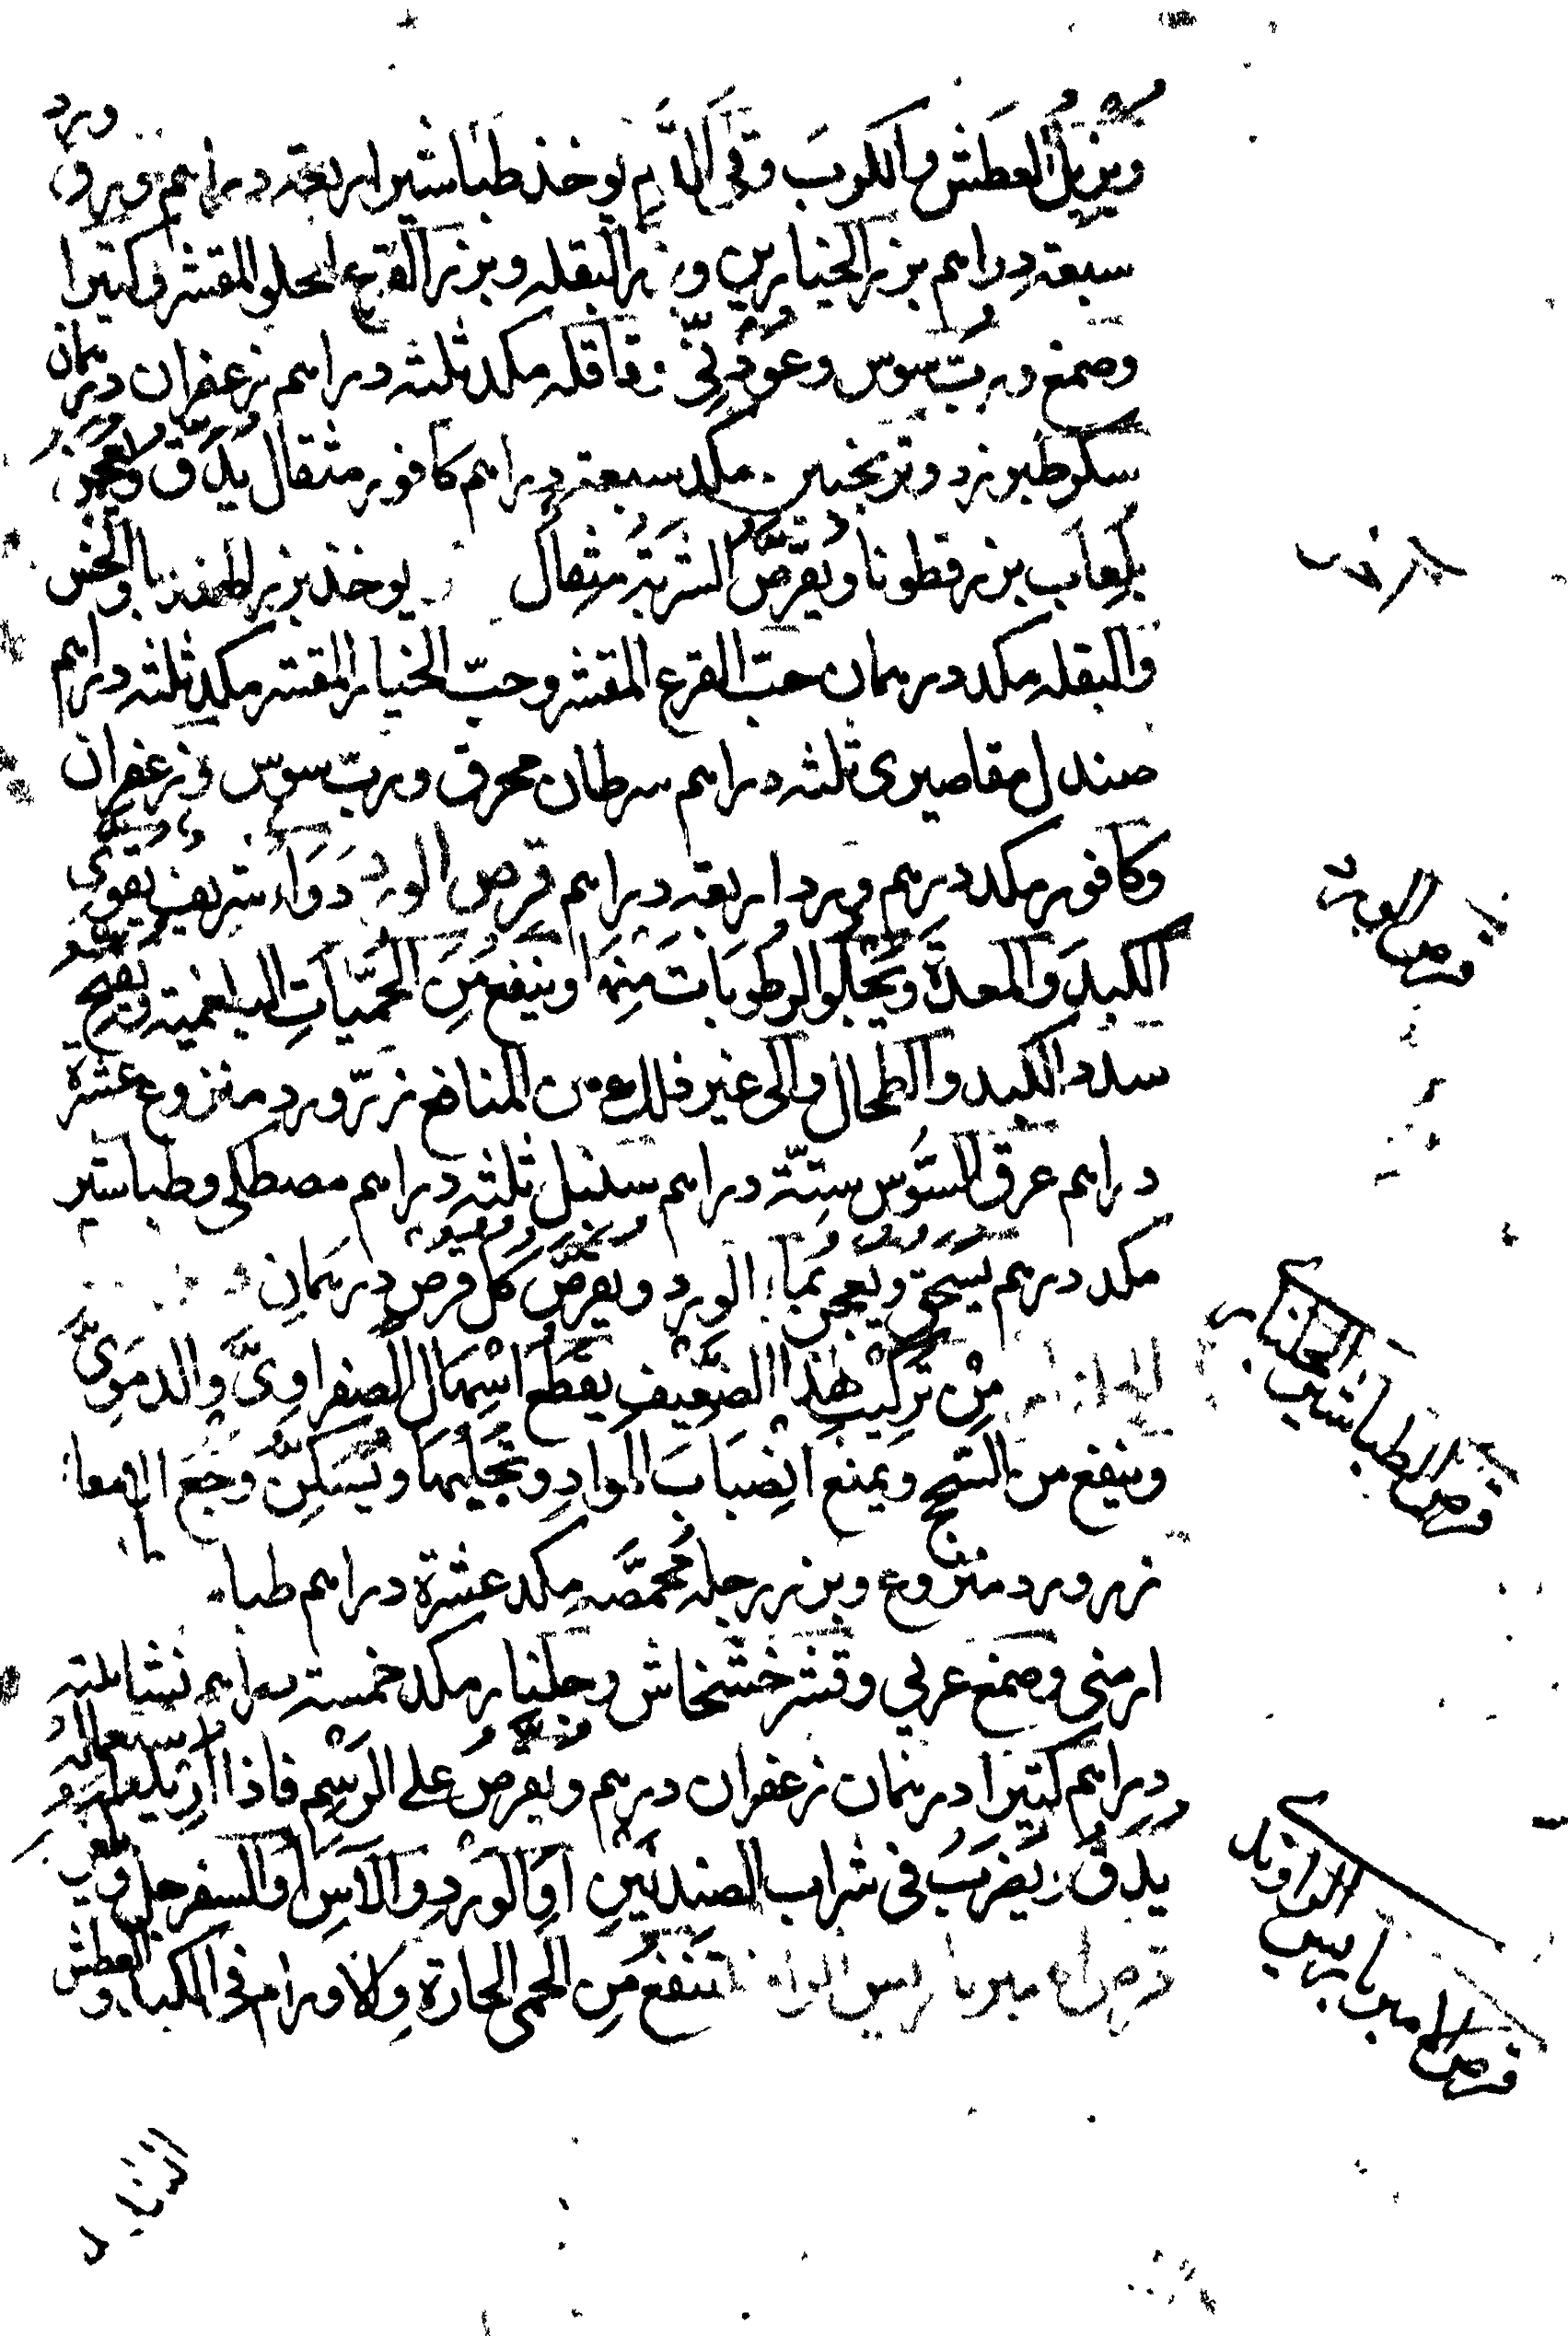 ويزيل العطش والكرب وقئ الدم يوخذ طباشير اربعة دراهم ورد
سبعة دراهم بزر الخيارين وبزر البقله وبزر القرع الحلو المقشر وكثيرا
وصمغ ورب سوس وعود ني وقاقله مكد ثلثه دراهم زعفران درهمان
سكر طبرزد وترنجبين مكد سبعة دراهم كافور مثقال يدق ويعجن
بلعاب بزر قطونا ويقرص الشربة مثقال يوخذ بزر الهندبا والخس
والبقله مكد درهمان حب القرع المقشر وحب الخيار المقشر مكد ثلثه دراهم
صندل مقاصيرى ثلثه دراهم سرطان محرق ورب سوس وزعفران
وكافور مكد درهم ورد اربعه دراهم قرص الورد دواء شريف يقوي
الكبد والمعدة ويجلو الرطوبات منها وينفع من الحميات البلغمية ويفتح
سدد الكبد والطحال والى غير ذلك من المنافع زر ورد منزوع عشرة
دراهم عرق السوس ستة دراهم سنبل ثلثه دراهم مصطكى وطباشير
مكد درهم يسحق ويعجن بماء الورد ويقرص كل قرص درهمان
من تركيب هذا الضعيف يقطع اسهال الصفراوي والدموي
وينفع من السحج ويمنع انصباب المواد وتجليها ويسكن وجع الامعا
زر ورد منزوع وبزر رجله محمصه مكد عشرة دراهم طبا
ارمنى وصمغ عربي وقشر خشخاش وجلنار مكد خمسة دراهم نشا ثلثه
دراهم كثيرا درهمان زعفران درهم ويقرص على الرسم فاذا اريد استعماله
يدق ويضرب فى شراب الصندلين او الورد والآس او السفرجل
قرص امبرباريس الراوند تنفع من الحمى الحارة والاورام فى الكبد والعطش
قرص الورد
قرص الطباشير الجلنارى
قرص الامبرباريس الراوندى